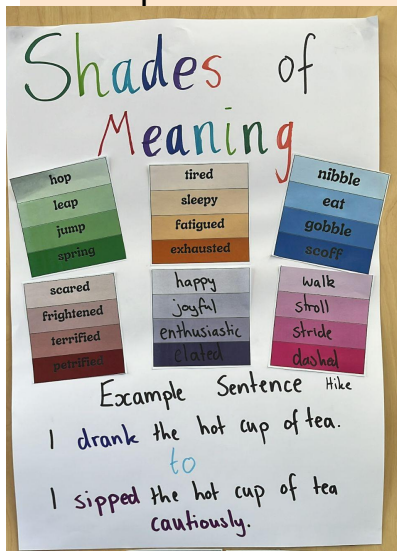 Shades of
Meaning
hop
leap
jump
spring
tired
sleepy
fatigued
exhausted
nibble
eat
gobble
scoff
scared
frightened
terrified
petrified
happy
joyful
enthusiastic
elated
walk
stroll
stride
dashed
Hike
Example Sentence
I drank the hot cup of tea.
to
I sipped the hot cup of tea
cautiously.